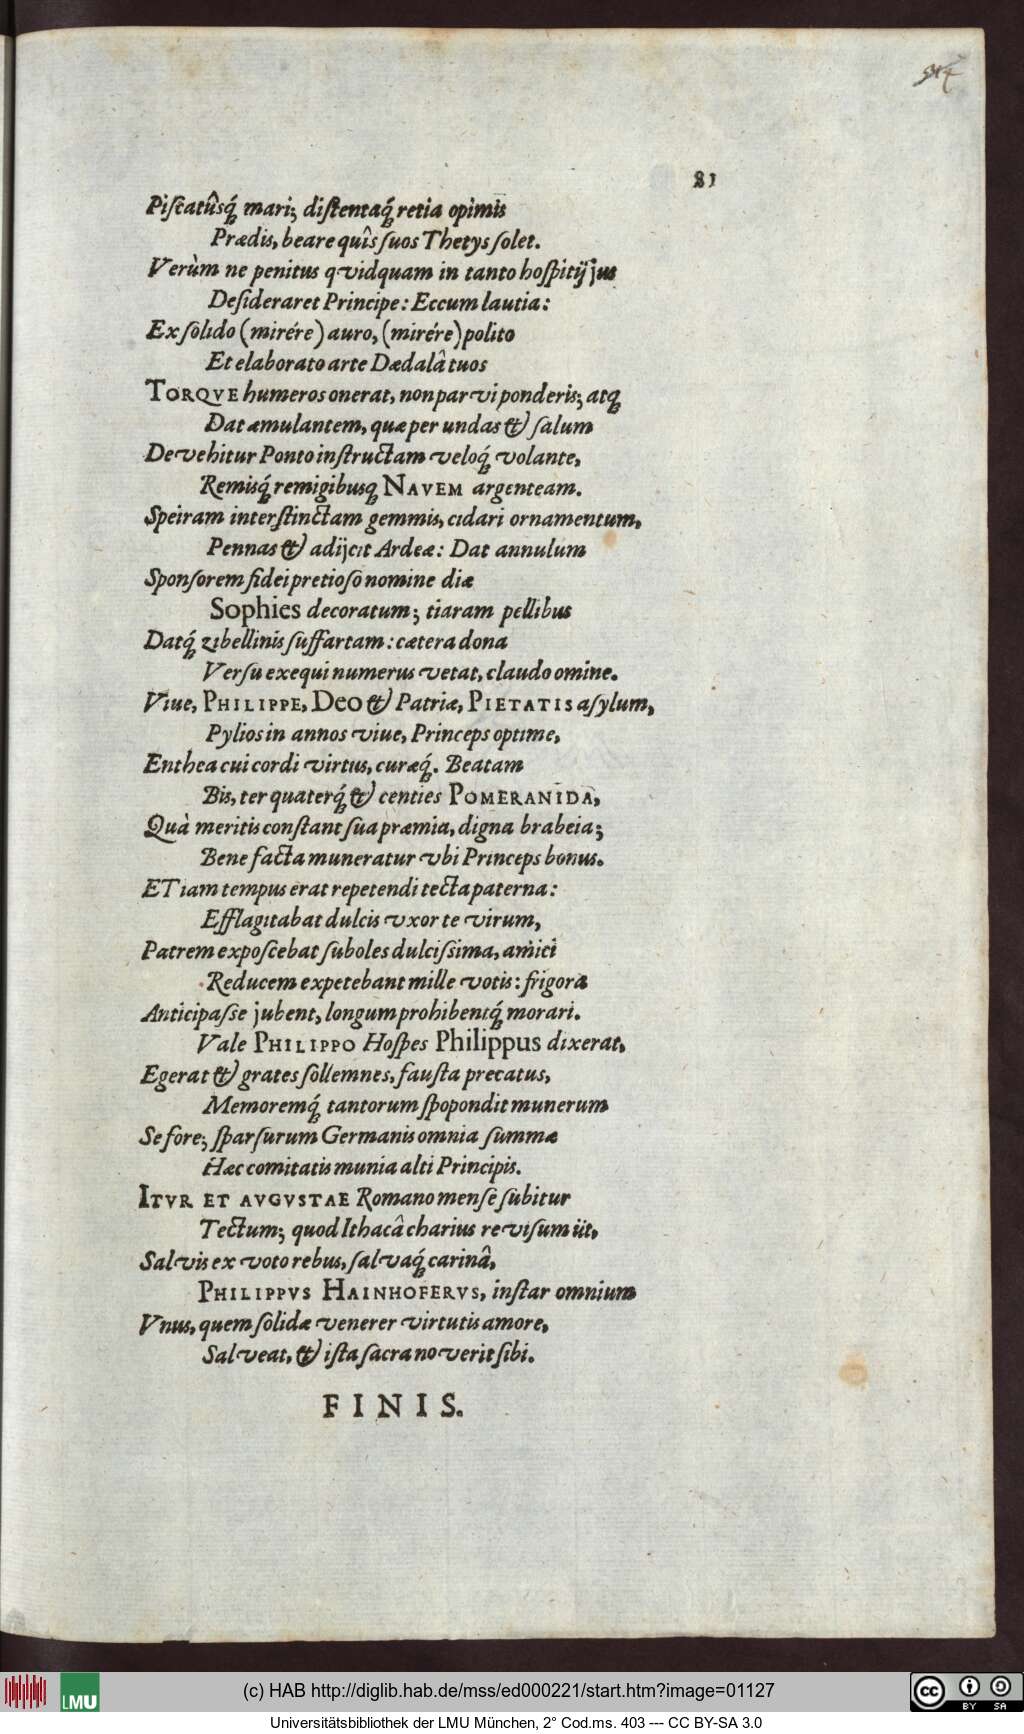 81
Piscatûsq́ mari; distentaq́ retia opimis
Prædis, beare quîs suos Thetys solet.
Verùm ne penitus qvidquam in tanto hospitij jus
Desideraret Principe: Eccum lautia:
Ex solido (mirére) auro, (mirére) polito
Et elaborato arte Dædalâ tuos
TORQVE humeros onerat, non parvi ponderis; atq
Dat æmulantem, quæ per undas & salum
Devehitur Ponto instructam veloq́ volante,
Remisq́ remigibusq NAVEM argenteam.
Speiram interstinctam gemmis, cidari ornamentum,
Pennas & adijcit Ardeæ: Dat annulum
Sponsorem fidei pretioso nomine diæ
Sophies decoratum; tiaram pellibus
Datq́ zibellinis suffartam: cætera dona
Versu exequi numerus vetat, claudo omine.
Viue, PHILIPPE, Deo & Patriæ, PIETATIS asylum,
Pylios in annos viue, Princeps optime,
Enthea cui cordi virtus, curæq́. Beatam
Bis, ter quaterq́ & centies POMERANIDA,
Quà meritis constant sua præmia, digna brabeia;
Bene facta muneratur vbi Princeps bonus.
ETiam tempus erat repetendi tecta paterna:
Efflagitabat dulcis vxor te virum,
Patrem exposcebat suboles dulcissima, amici
Reducem expetebant mille votis: frigora
Anticipasse jubent, longum prohibentq́ morari.
Vale PHILIPPO Hospes Philippus dixerat,
Egerat & grates sollemnes, fausta precatus,
Memoremq́ tantorum spopondit munerum
Se fore; sparsurum Germanis omnia summæ
Hæc comitatis munia alti Principis.
ITVR ET AVGVSTAE Romano mense subitur
Tectum; quod Ithacâ charius revisum iit,
Salvis ex voto rebus, salvaq́ carinâ,
PHILIPPVS HAINHOFERVS, instar omnium
Vnus, quem solidæ venerer virtutis amore,
Salveat, & ista sacra noverit sibi.
FINIS.
LMU
(c) HAB http://diglib.hab.de/mss/ed000221/start.htm?image=01127
cc BY SA
Universitätsbibliothek der LMU München, 2° Cod.ms. 403 --- CC BY-SA 3.0